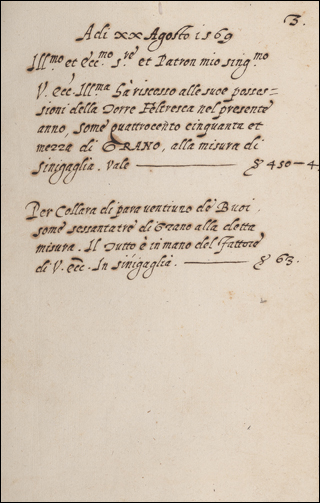 3.
A di XX Agosto 1569
Ill.mo et Ecc.mo S.re et Patron mio sing.mo
V. Ecc. Ill.ma hà riscesso alle suoe posses-
sioni della Torre Feltresca nel presente
anno, some quattrocento cinquanta et
mezza di GRANO, alla misura di
Sinigaglia. Vale
450
Per Collara di para ventiuno de Buoi,
some sessantatre di Grano alla detta
misura. Il Tutto è in mano del Fattore
di V. Ecc. In Sinigaglia.
63.